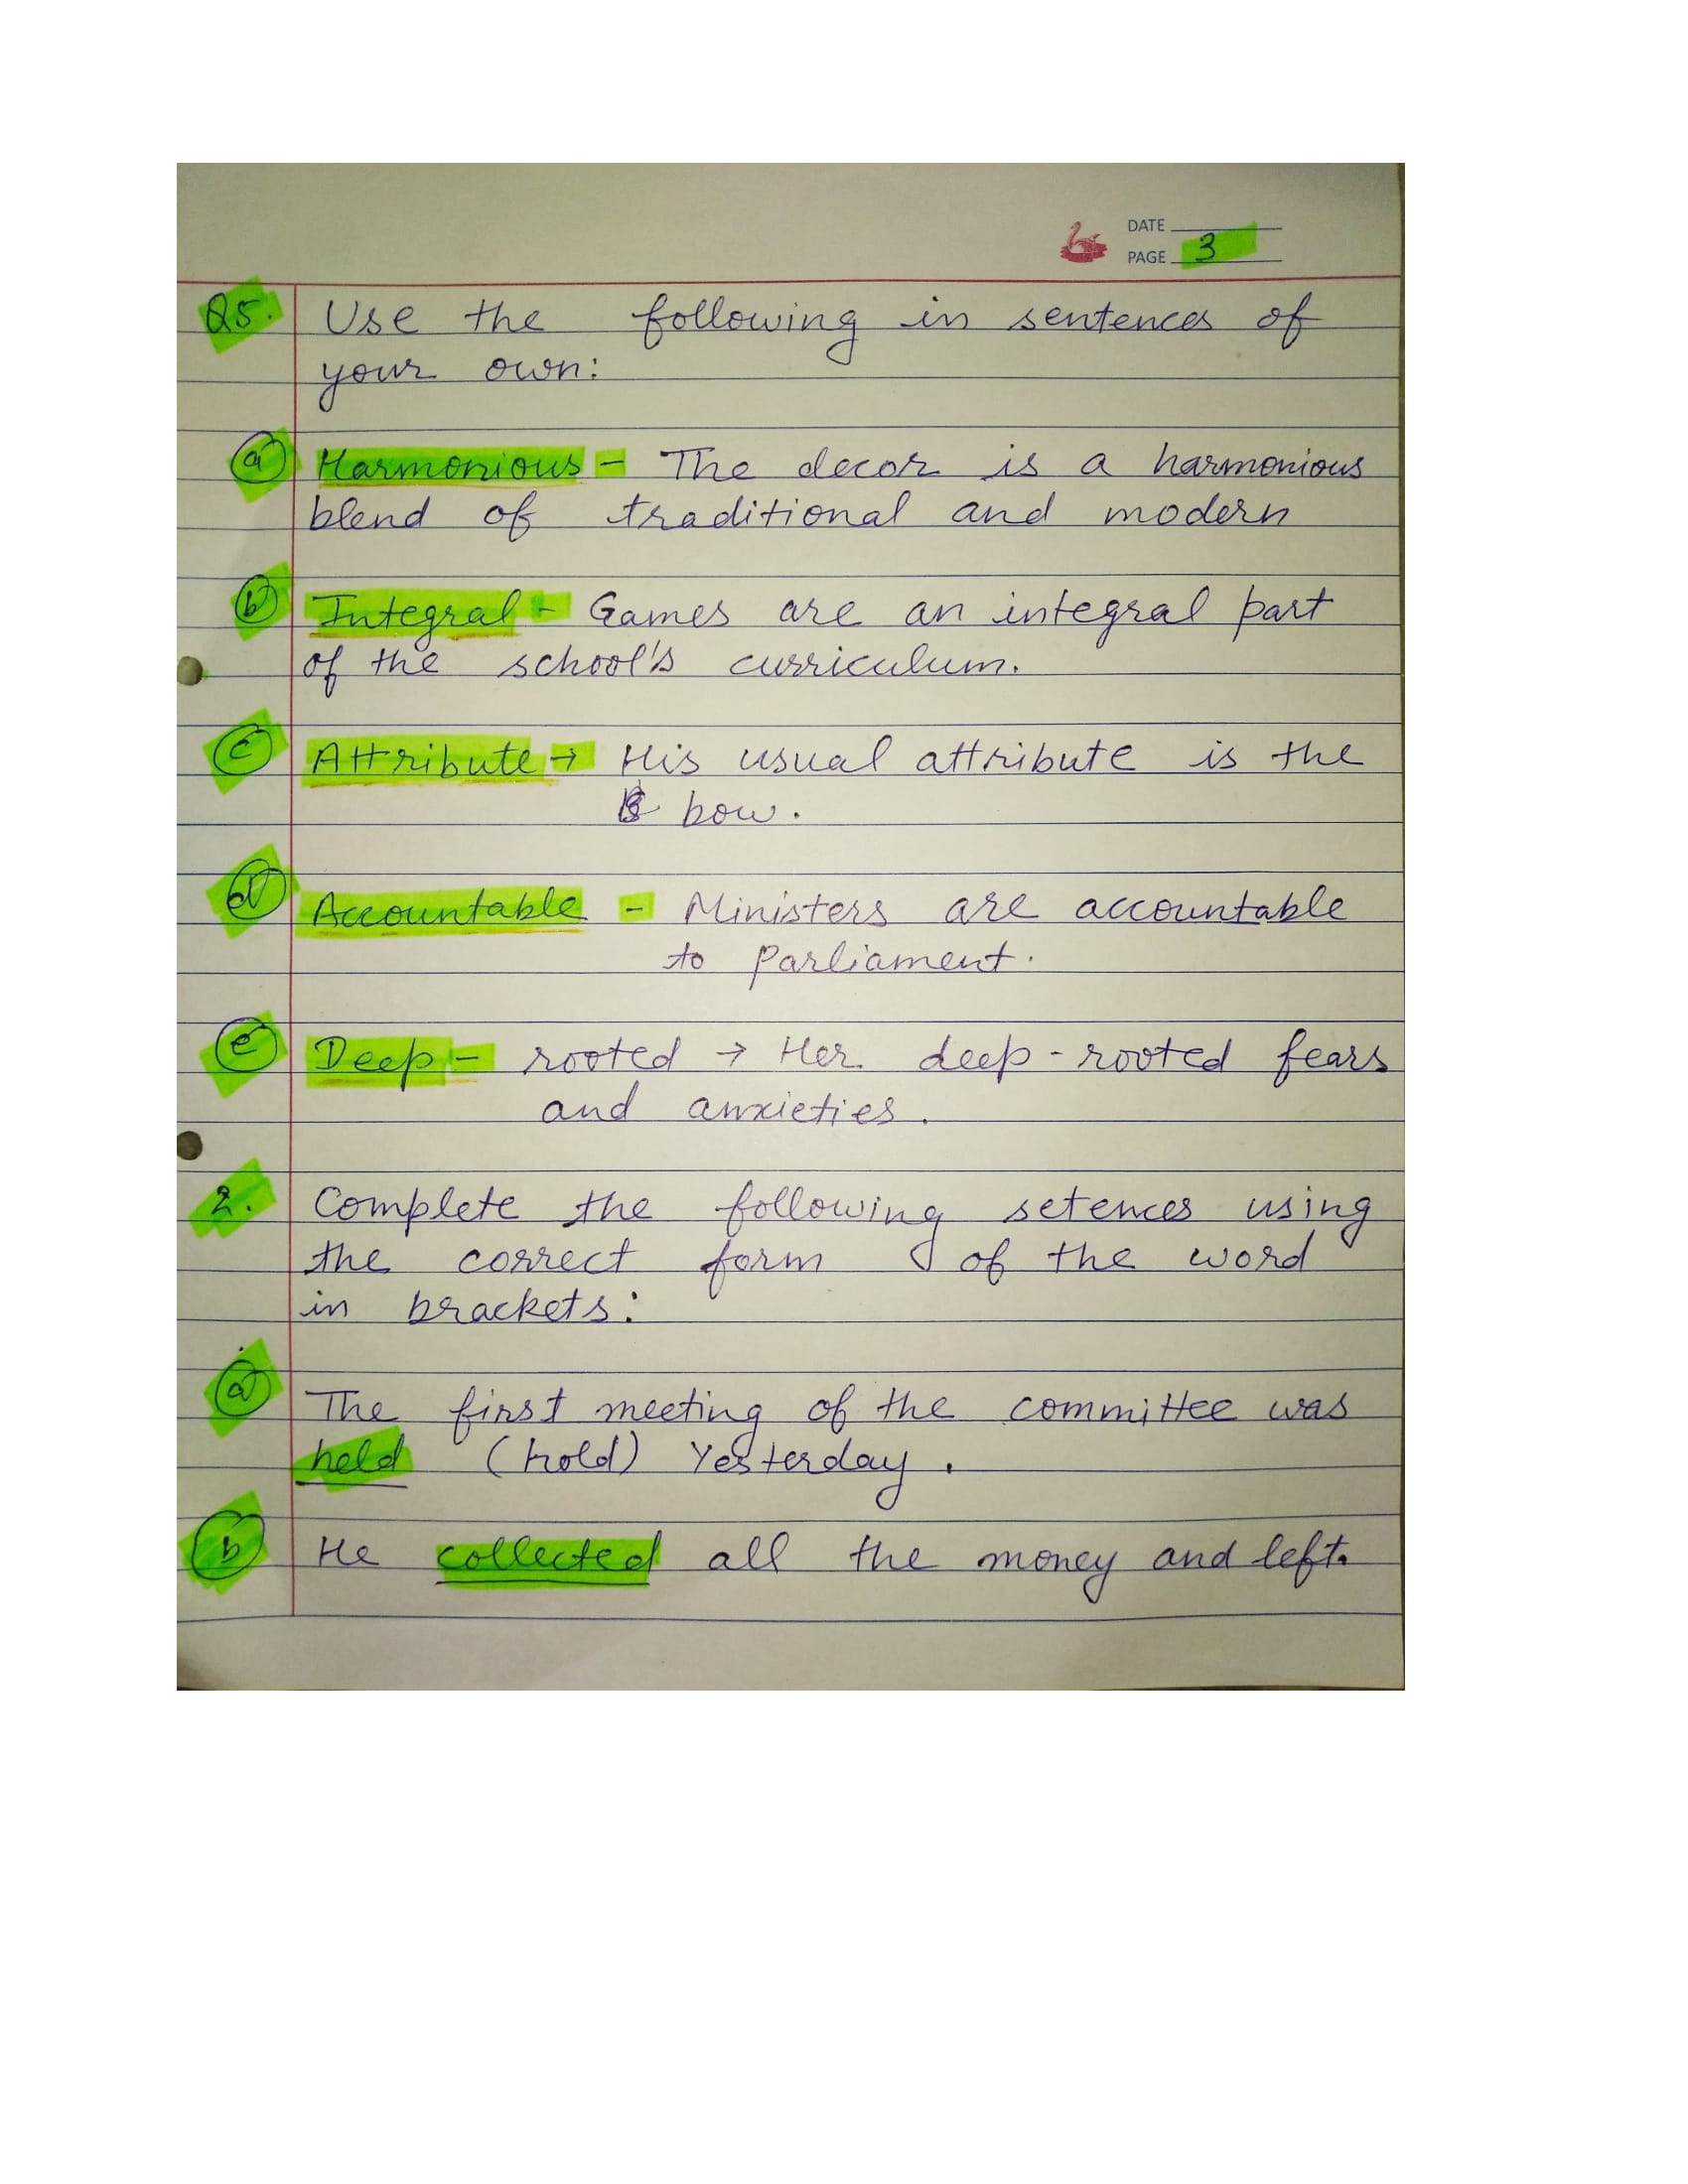 DATE
PAGE 3
Q5. Use the following in sentences of
your own:
a) Harmonious - The decor is a harmonious
blend of traditional and modern
b) Integral - Games are an integral part
of the school's curriculum.
c) Attribute → His usual attribute is the
bow.
d) Accountable - Ministers are accountable
to Parliament.
e) Deep - rooted → Her deep-rooted fears
and anxieties.
2. Complete the following setences using
the correct form of the word
in brackets:
a) The first meeting of the committee was
held (hold) Yesterday.
b) He collected all the money and left.